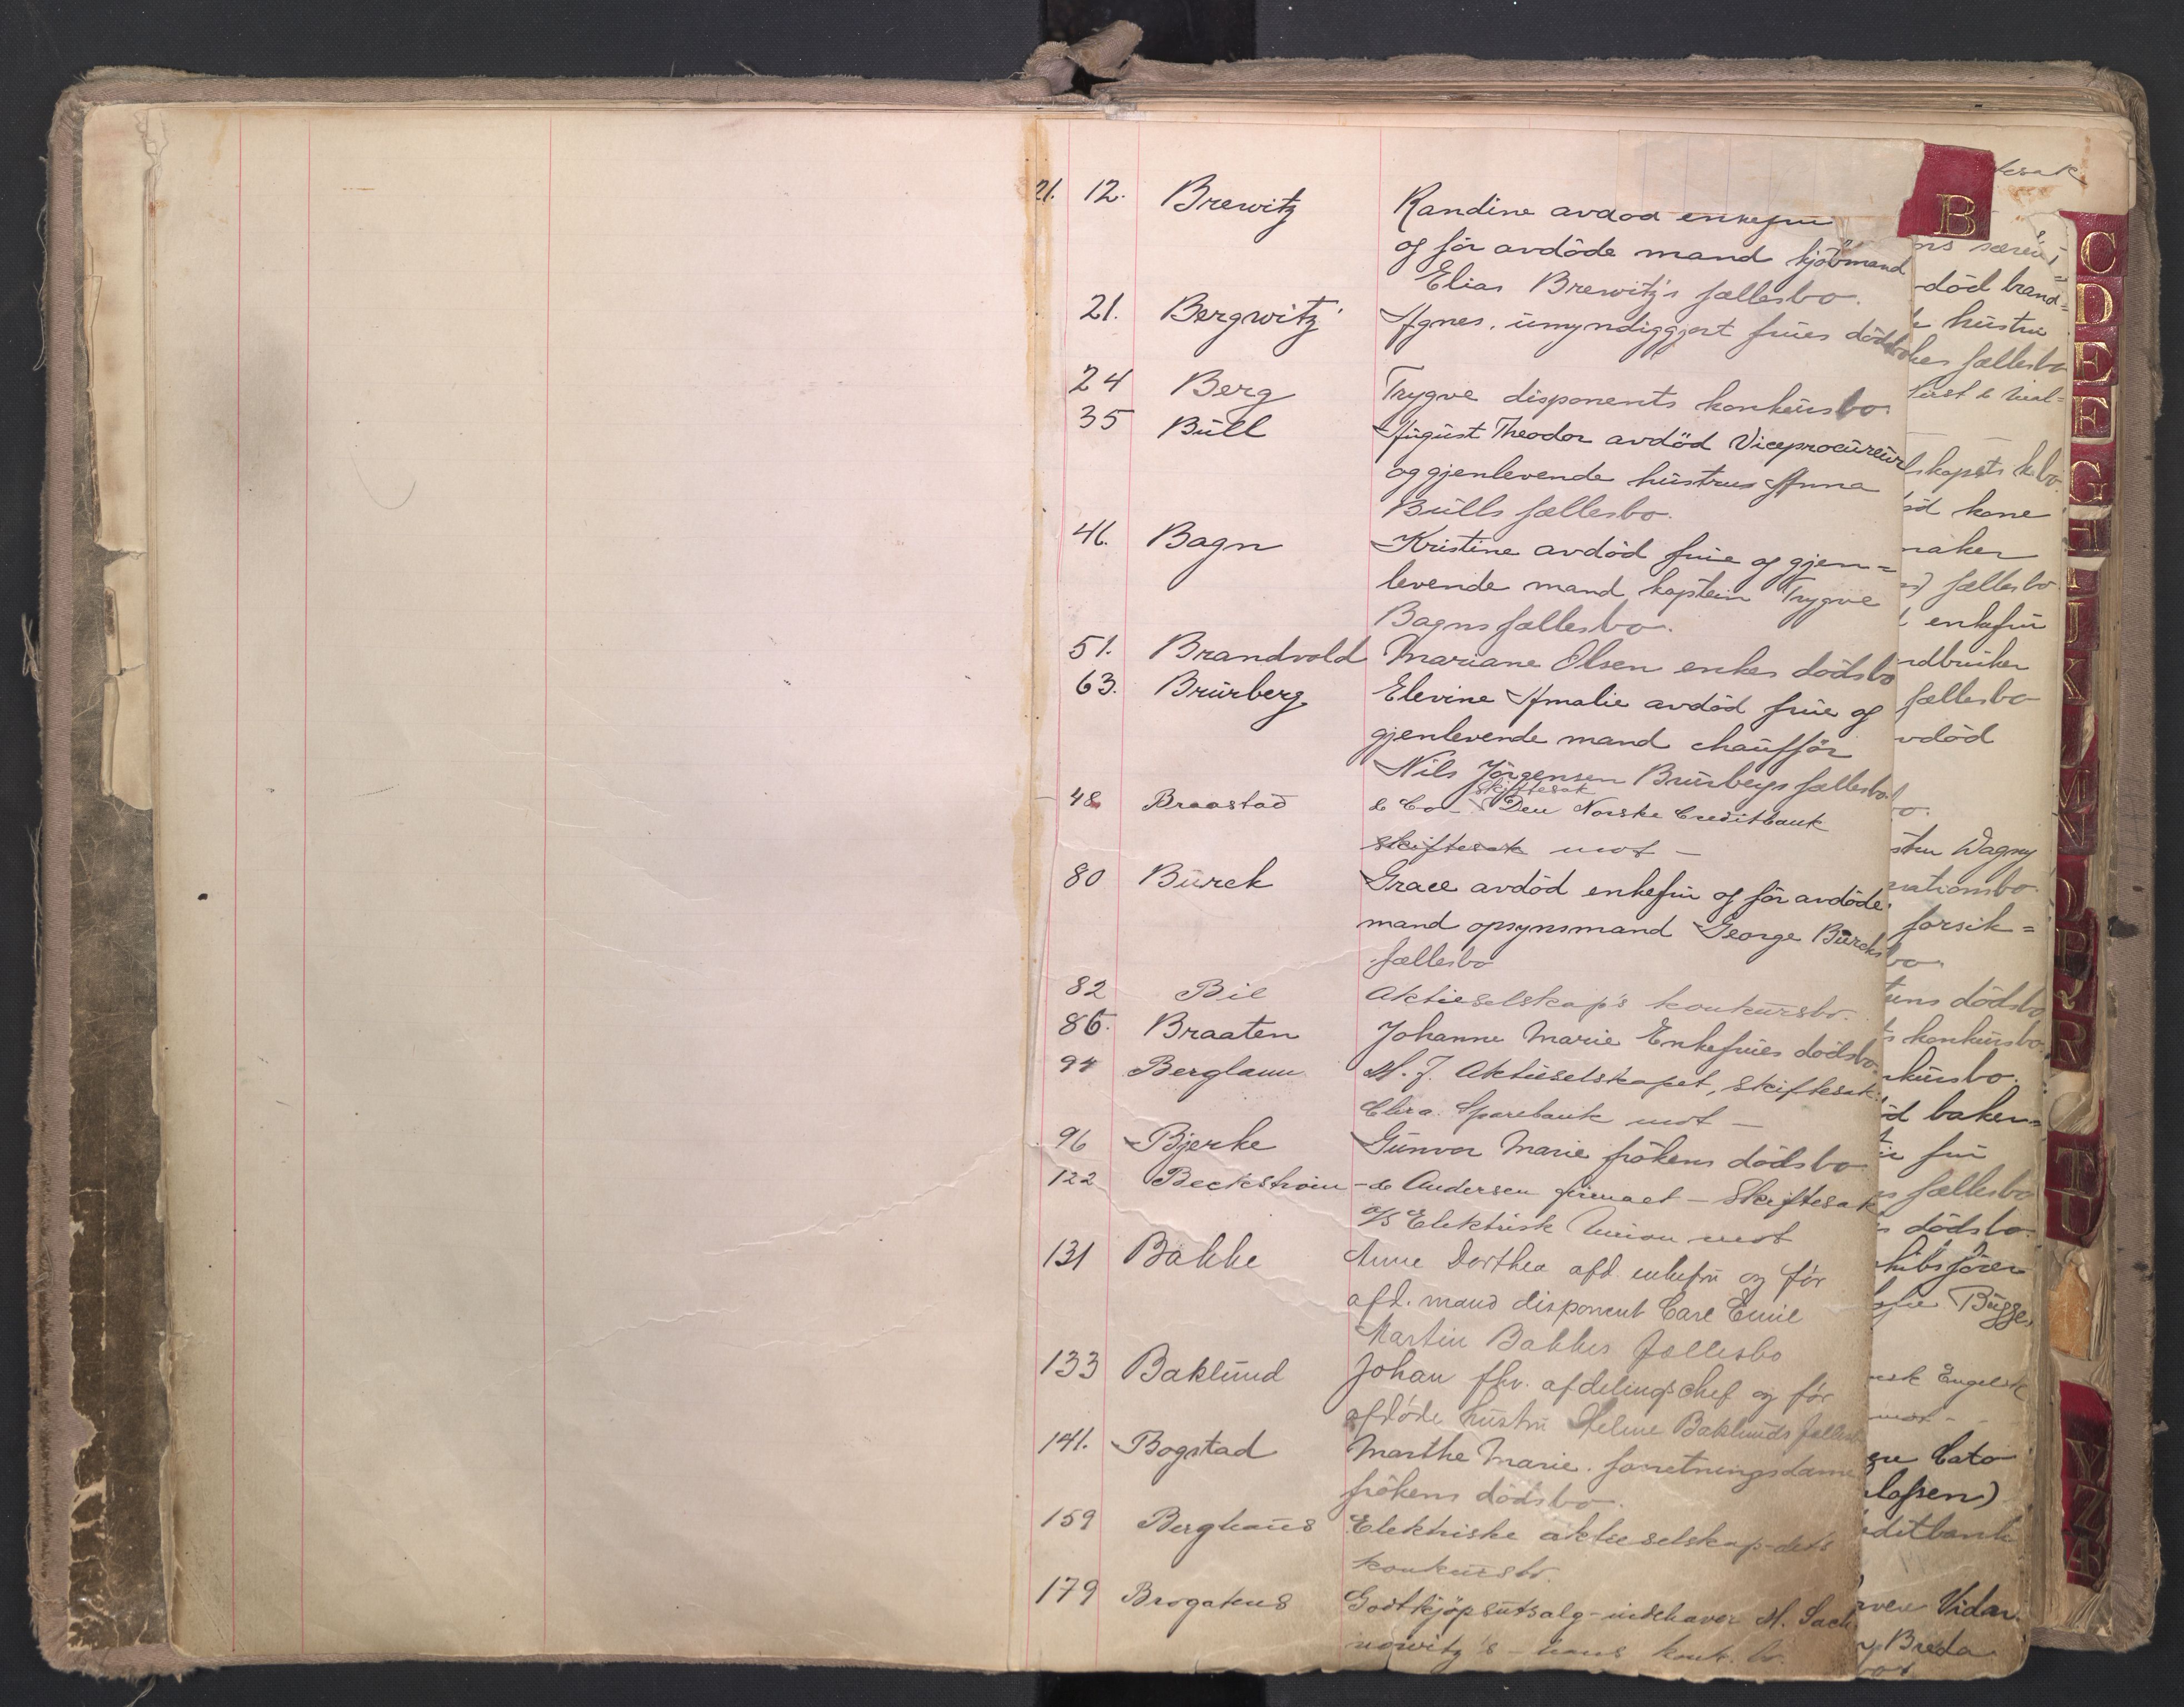 21. 12. Brewitz Randine avdød enkefru
og før avdøde mand kjøbmand
Elias Brewitz's fællesbo.
21. Bergwitz Agnes, umyndiggjort frues dødsbo
24 Berg Trygve disponents konkursbo
35 Bull August Theodor avdød Viceprocureur
og gjenlevende hustrus Anna
Bulls fællesbo.
46. Bagn Kristine avdød frue og gjen=
levende mand kaptein Trygve
Bagns fællesbo.
51. Brandvold Mariane Olsen enkes dødsbo
63. Brurberg Elevine Amalie avdød frue og
gjenlevende mand chauffør
Nils Jørgensen Brurbergs fællesbo.
skiftesak
48 Braastad & Co - Den Norske Creditbank
skiftesak mot -
80 Burck Grace avdød enkefru og før avdøde
mand opsynsmand George Burcks
fællesbo
82 Bil Aktieselskap's konkursbo.
86. Braaten Johanne Marie Enkefrues dødsbo.
94 Berglaun M. J. Aktieselskapet, skiftesak
Sparebank mot -
96 Bjerke Gunvor Marie frøkens dødsbo
122 Beckstrøm - & Andersen firmaet - Skiftesak
A/S Elektrisk Union mot
131 Bakke Anne Dorthea afd. enkefru og før
afd. mand disponent Carl Emil
Martin Bakkes fællesbo
133 Baklund Johan fhv. afdelingschef og før
afdøde hustru Helene Baklunds fællesbo
141. Bogstad Marthe Marie. forretningsdame
frøkens dødsbo.
159 Berghaus Elektriske aktieselskap-dets
konkursbo.
179 Brogatens Godtkjøpsutsalg - indehaver M. Sach
nowitz's - hans konk. bo.
B
død brand=
hustru
fællesbo
kone
fællesbo
enkefru
fællesbo
Dagny
forsik=
dødsbo
konkursbo
baker=
fru
fællesbo
dødsbo.
Bugges
Engelsk
mot -
Cato
Vidar
Breda
C
D
E
F
G
H
I
J
K
M
N
O
P
R
T
U
Y
Z